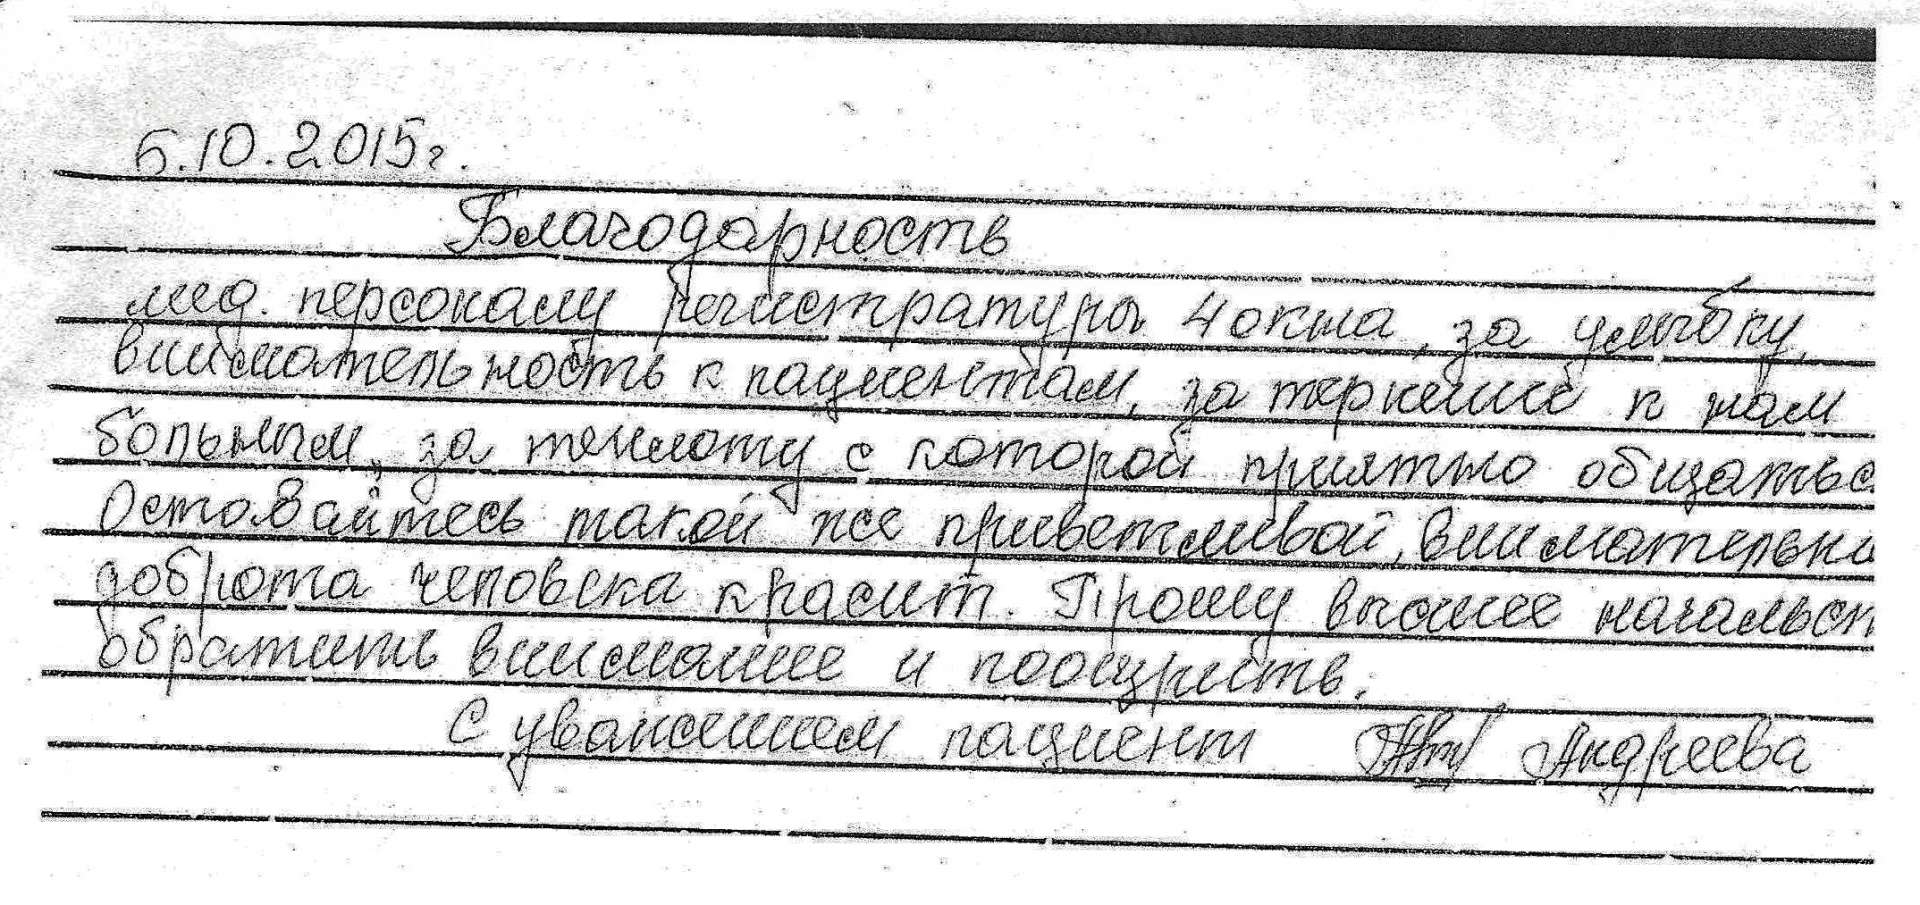 5.10.2015г.
Благодарность
мед. персоналу регистратуры 4 окна, за улыбку,
внимательность к пациентам, за терпение к нам
больным, за теплоту с которой приятно общатьс
Оставайтесь такой же приветливой, внимательно
доброта человека красит. Прошу высшее начальст
обратить внимание и поощрить.
С уважением пациент Андреева